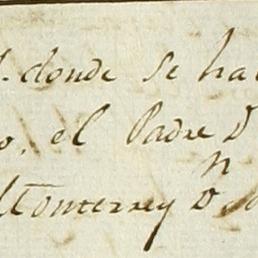 donde se ha
el Padre D
Monterrey D.n